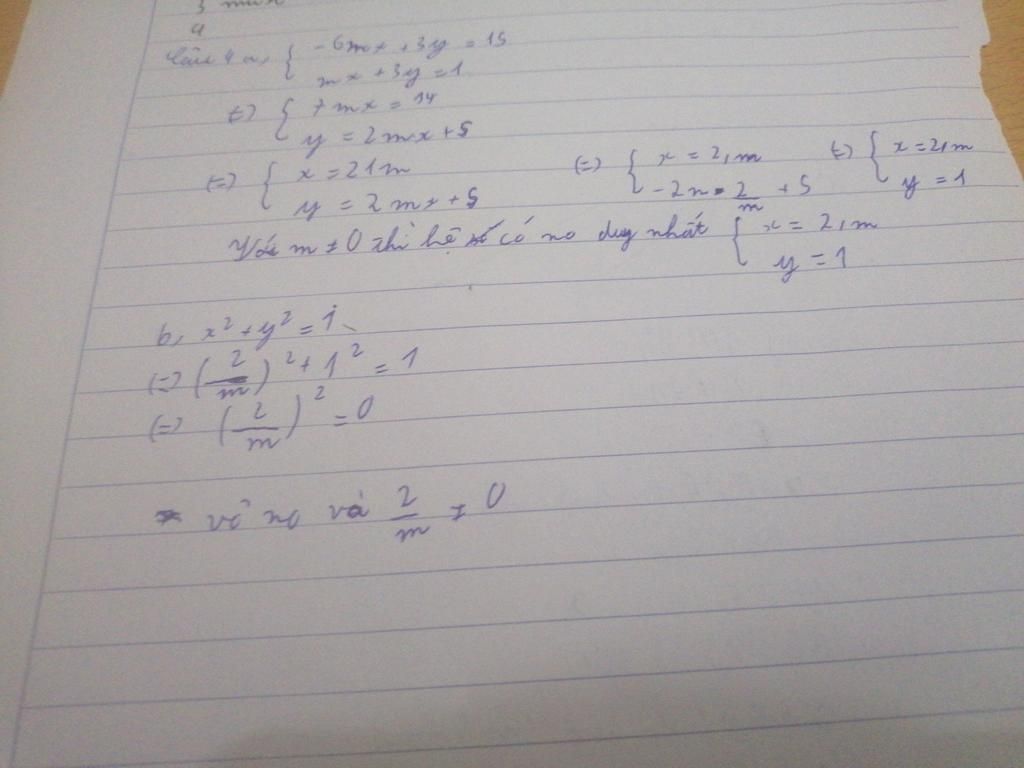 3
4
Câu 4 a, { -6mx + 3y = 15
mx + 3y = 1
(=) { 7mx = 14
y = 2mx + 5
(=) { x = 2/m (=) { x = 2/m (=) { x = 2/m
y = 2mx + 5 -2m · 2/m + 5 y = 1
Với m ≠ 0 thì hệ có no duy nhất { x = 2/m
y = 1
b, x² + y² = 1
(=) (2/m)² + 1² = 1
(=) (2/m)² = 0
vô no và 2/m ≠ 0